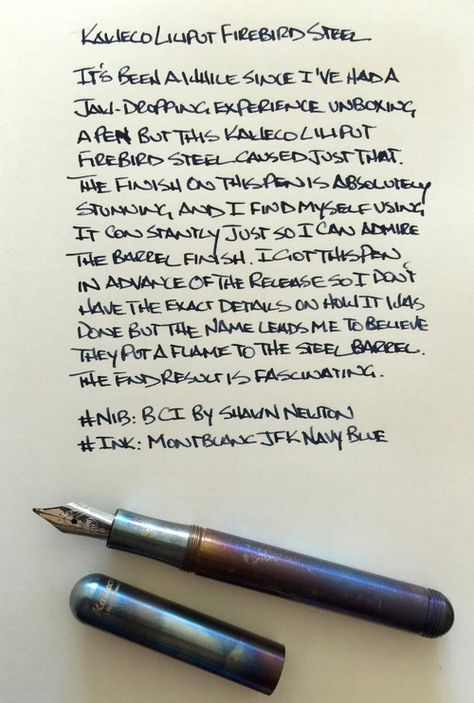 KAWECO LILIPUT FIREBIRD STEEL
IT'S BEEN A WHILE SINCE I'VE HAD A
JAW-DROPPING EXPERIENCE UNBOXING
A PEN BUT THIS KAWECO LILIPUT
FIREBIRD STEEL CAUSED JUST THAT.
THE FINISH ON THIS PEN IS ABSOLUTELY
STUNNING, AND I FIND MYSELF USING
IT CONSTANTLY JUST SO I CAN ADMIRE
THE BARREL FINISH. I GOT THIS PEN
IN ADVANCE OF THE RELEASE SO I DON'T
HAVE THE EXACT DETAILS ON HOW IT WAS
DONE BUT THE NAME LEADS ME TO BELIEVE
THEY PUT A FLAME TO THE STEEL BARREL.
THE END RESULT IS FASCINATING.
#NIB: BCI BY SHAWN NEWTON
#INK: MONTBLANC JFK NAVY BLUE
Kaweco